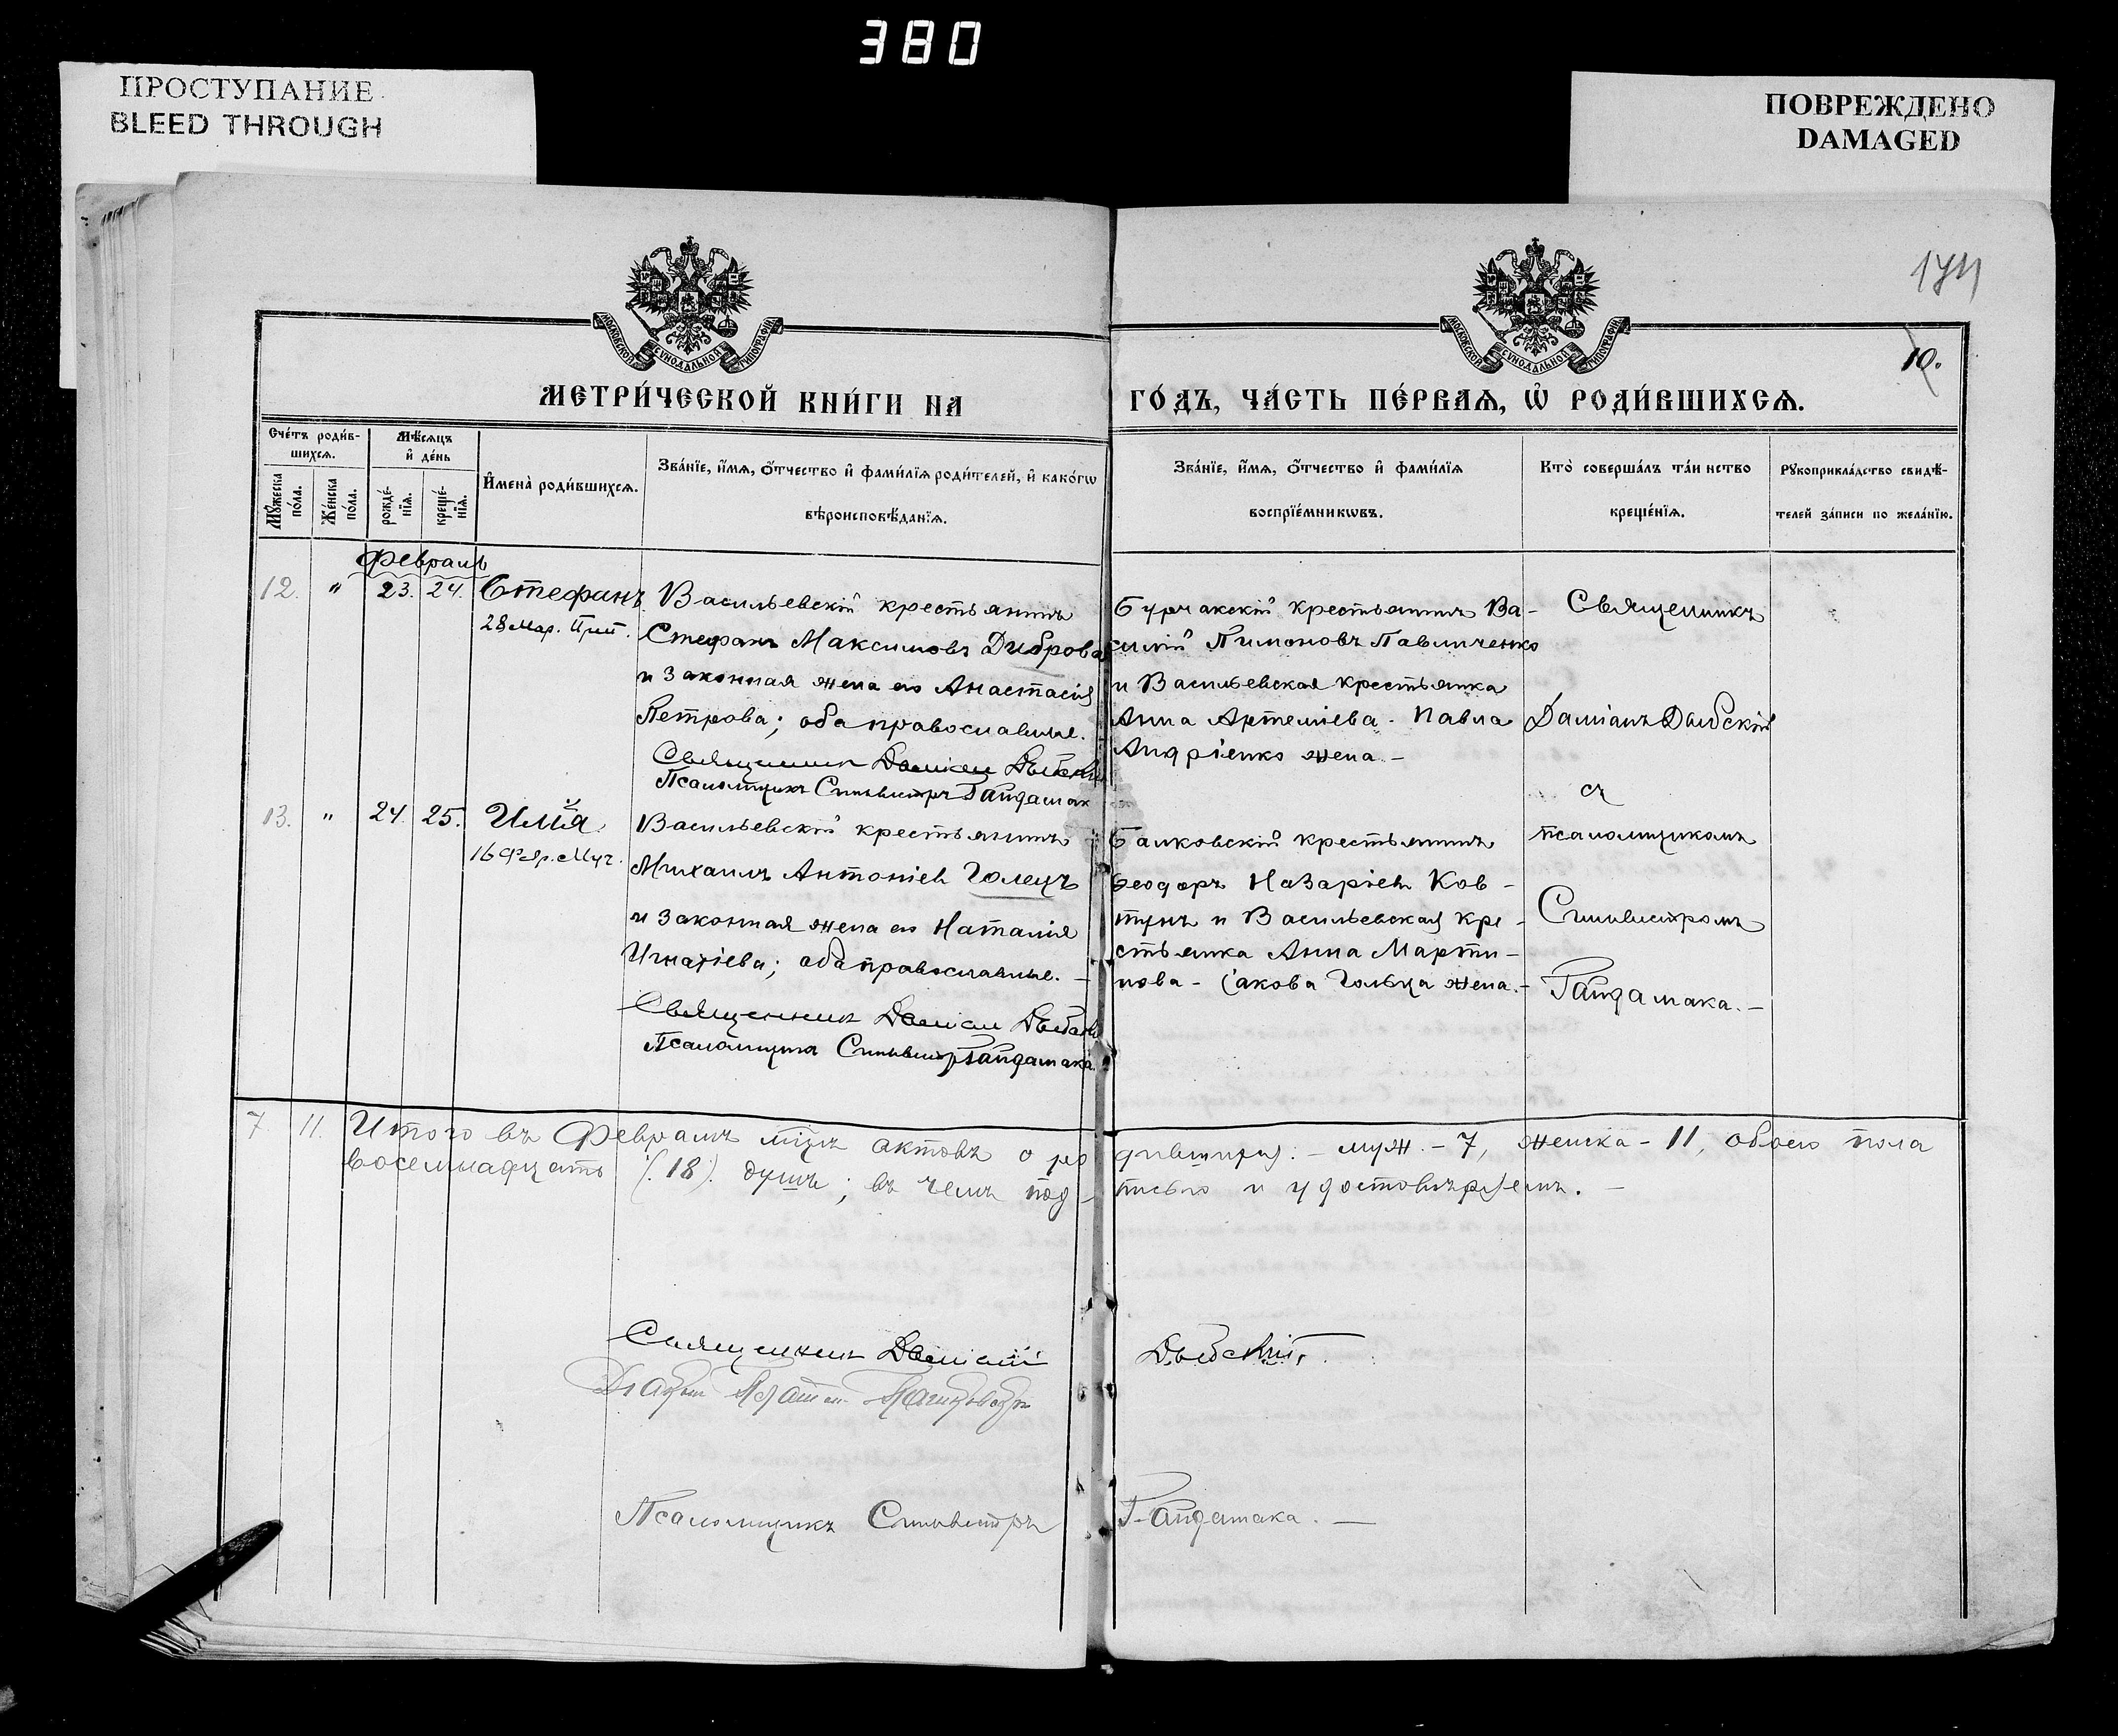 380
ПРОСТУПАНИЕ
BLEED THROUGH
ПОВРЕЖДЕНО
DAMAGED
174
10.
МОСКОВСКОЙ СѴНОДАЛЬНОЙ ТИПОГРАФІИ
МОСКОВСКОЙ СѴНОДАЛЬНОЙ ТИПОГРАФІИ
МЕТРИ́ЧЕСКОЙ КНИ́ГИ НА
ГО́ДЪ, ЧА́СТЬ ПЕ́РВАѦ, Ѡ҆ РОДИ́ВШИХСѦ.
Сче́тъ роди́в-
шихсѧ.
Мꙋ́жеска по́ла.
Же́нска по́ла.
Мѣ́сѧцъ
и҆ де́нь
рожде́-
нїѧ.
креще́-
нїѧ.
И҆мена̀ роди́вшихсѧ.
Зва́нїе, и҆́мѧ, ѻ҆́тчество и҆ фами́лїѧ роди́телей, и҆ како́гѡ
вѣроисповѣ́данїѧ.
Зва́нїе, и҆́мѧ, ѻ҆́тчество и҆ фами́лїѧ
воспрїе́мникѡвъ.
Кто̀ соверша́лъ та́инство
креще́нїѧ.
Рꙋкоприкла́дство свидѣ́-
телей за́писи по жела́нїю.
Февраль
12. " 23. 24. Стефанъ
28 Мар. Прп.
Васильевскій крестьянинъ
Стефанъ Максимовъ Диброва
и законная жена его Анастасія
Петрова; оба православные.
Священник Дамиан Дыбский
Псаломщикъ Сильвестръ Гайдамак
Бурчакскій крестьянинъ Ва-
силій Пимоновъ Павличенко
и Васильевская крестьянка
Анна Артеміева. Павла
Андріенко жена. –
Священникъ
Даміанъ Дыбскій
съ
псаломщикомъ
Сильвестромъ
Гайдамака. –
13. " 24. 25. Илія
16 Фвр. Муч.
Васильевскій крестьянинъ
Михаилъ Антоніев Голецъ
и законная жена его Наталія
Игнатіева; оба православные. –
Священник Дамиан Дыбский
Псаломщикъ Сильвестръ Гайдамака
Балковскій крестьянинъ
Ѳеодоръ Назаріев Ков-
тунъ и Васильевская кре-
стьянка Анна Марти-
нова - Іакова Гольца жена. –
7. 11. Итого въ Февралѣ мцѣ актовъ о ро
дившихся: - муж. - 7, женска - 11, обоего пола
восемнадцать (18). душъ; въ чемъ под-
писью и удостовѣряемъ. –
Священник Даміан
Дыбский
Псаломщикъ Сильвестръ
Гайдамака. –